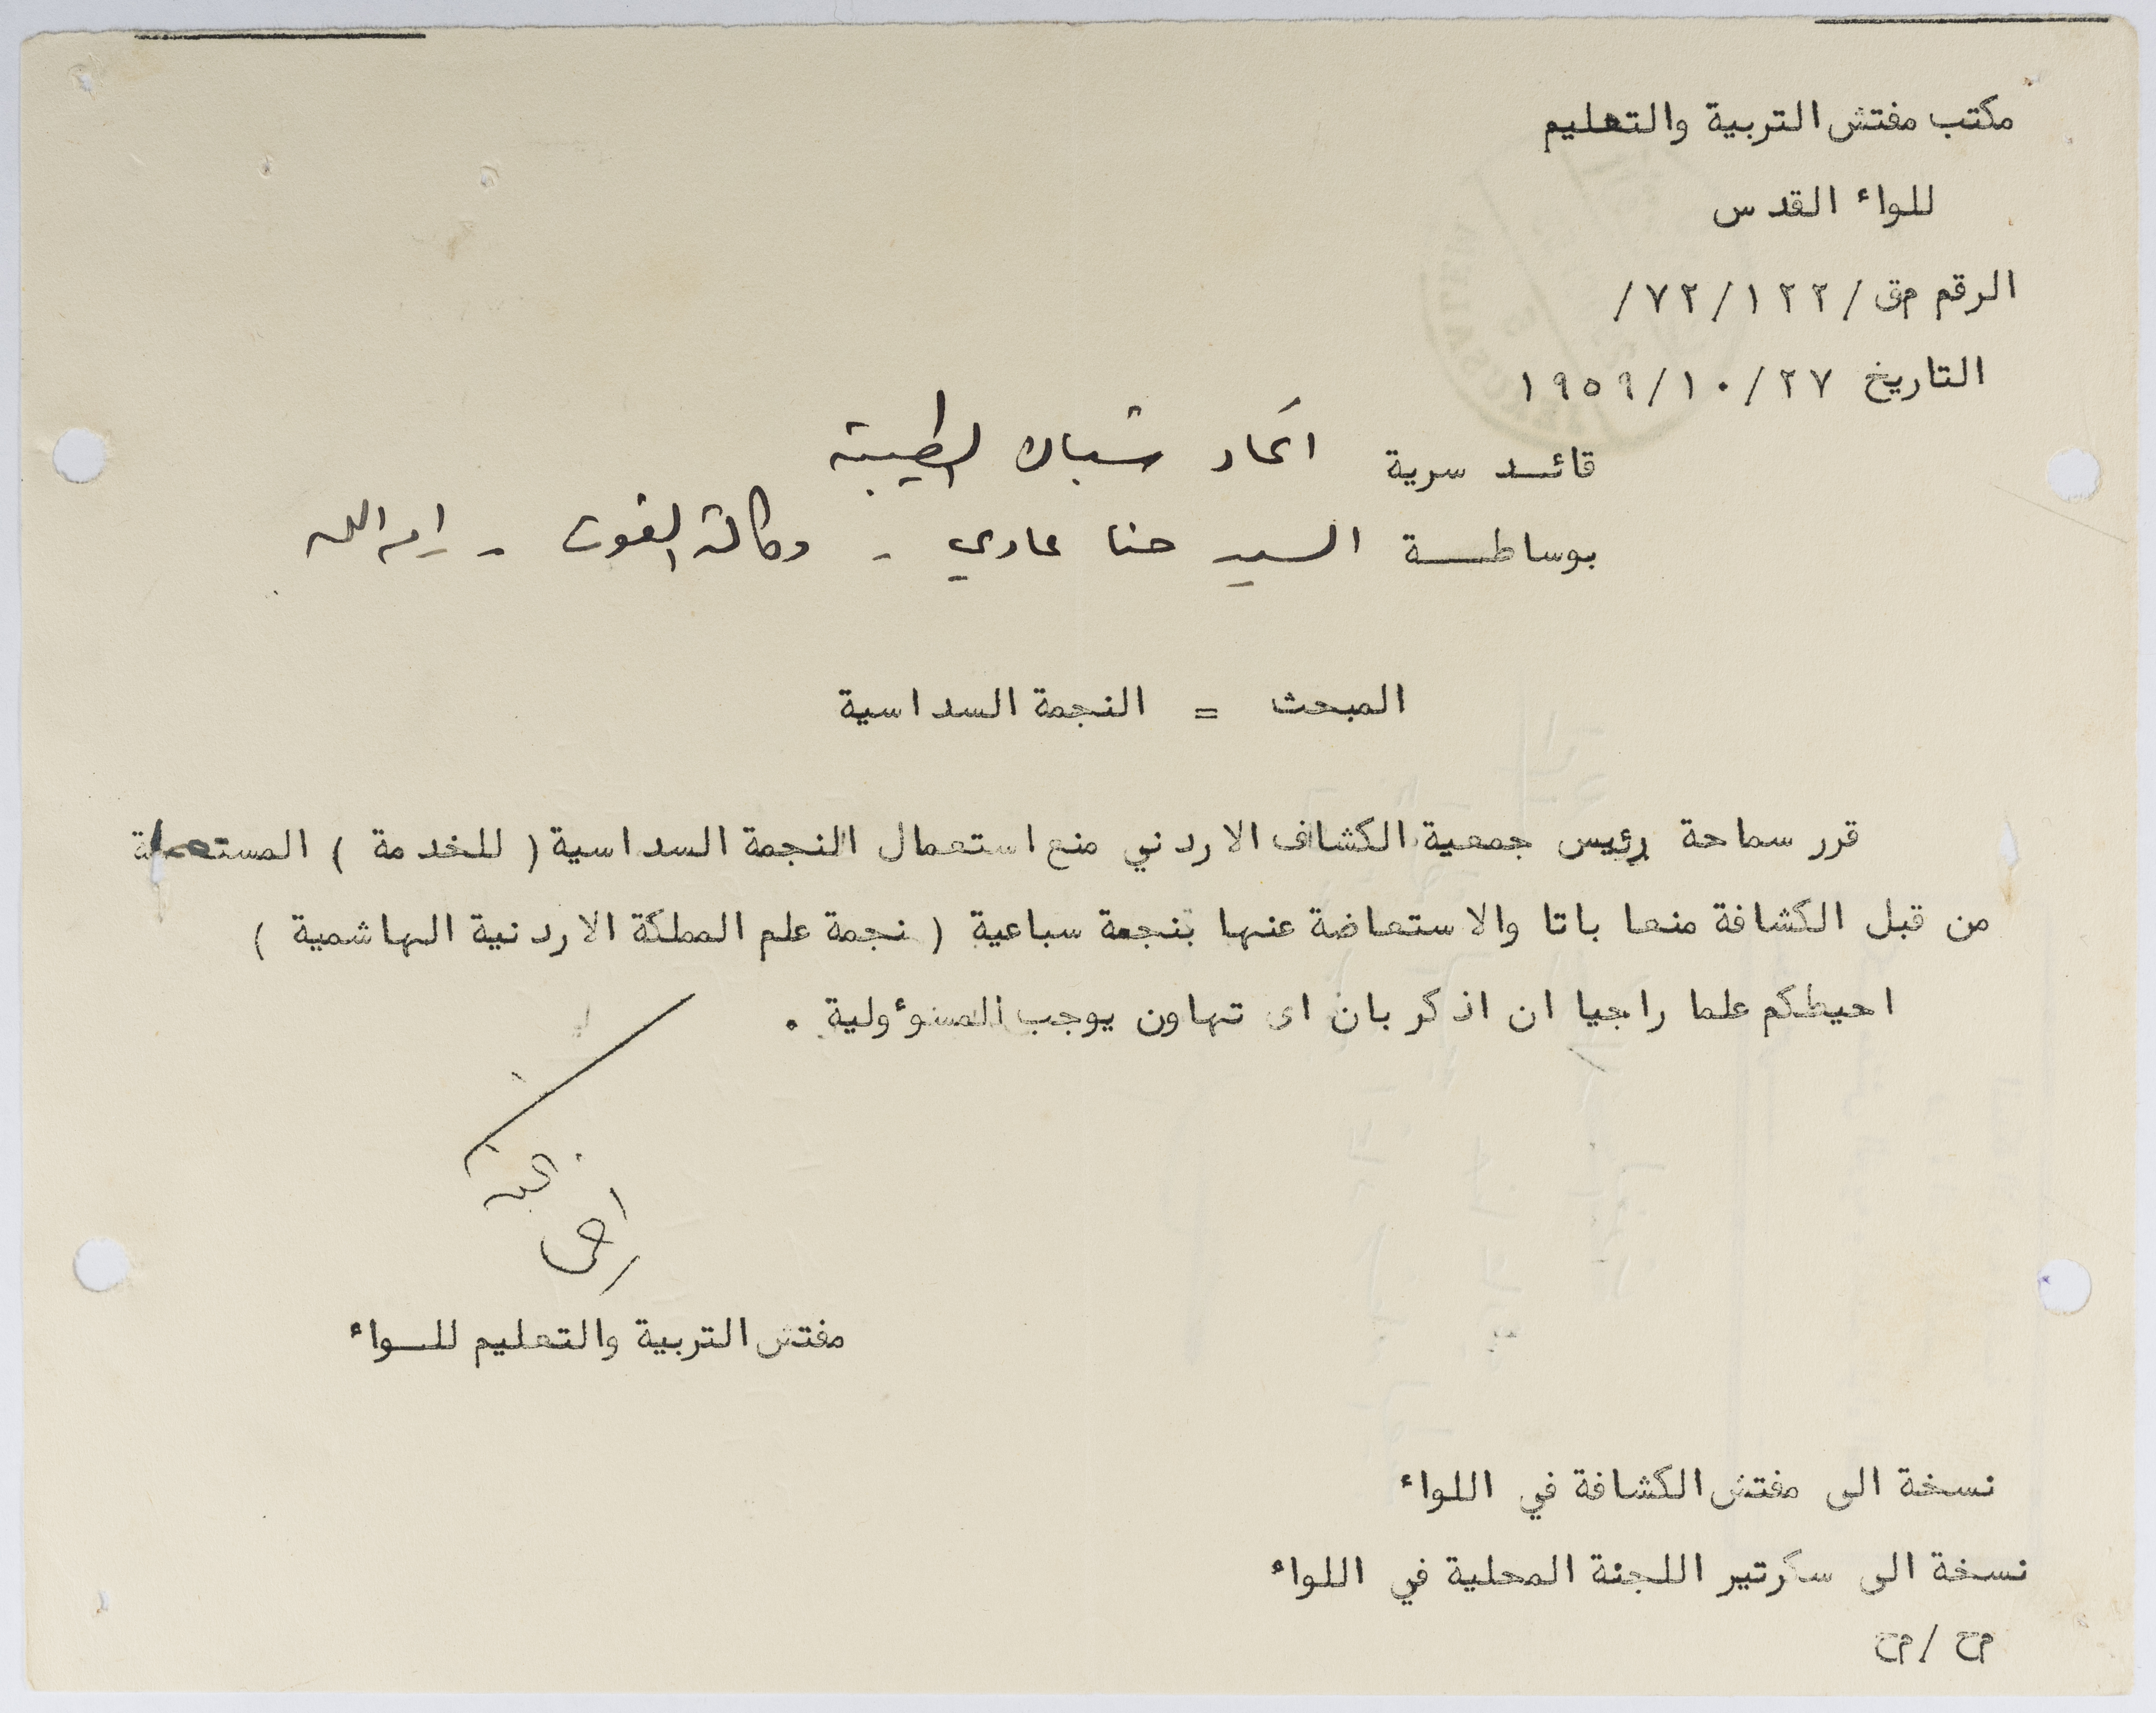 مكتب مفتش التربية والتعليم
للواء القدس
الرقم مق/٧٢/١٢٢/
التاريخ ١٩٥٩/١٠/٢٧
قائد سرية اتحاد شبان الطيبة
بوساطة السيد حنا عادي - وكالة الغوث - رام الله
المبحث = النجمة السداسية
قرر سماحة رئيس جمعية الكشاف الاردني منع استعمال النجمة السداسية ( للخدمة ) المستعملة
من قبل الكشافة منعا باتا والاستعاضة عنها بنجمة سباعية ( نجمة علم المملكة الاردنية الهاشمية )
احيطكم علما راجيا ان اذكر بان اى تهاون يوجب المسوءولية .
مفتش التربية والتعليم للواء
نسخة الى مفتش الكشافة في اللواء
نسخة الى سكرتير اللجنة المحلية في اللواء
مح/مح